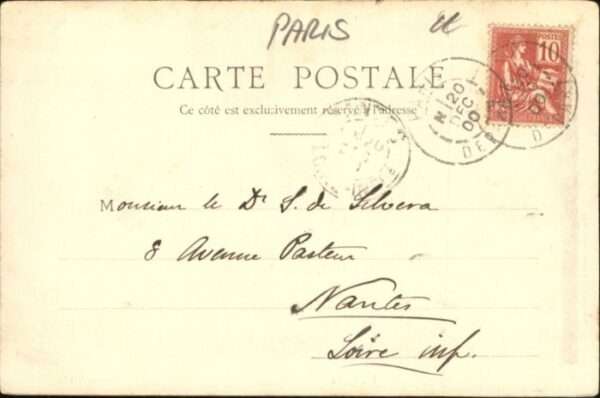 PARIS
CARTE POSTALE
Ce côté est exclusivement réservé à l'adresse
10
POSTES
20
DEC
00
DEP
Monsieur le Dr S. de Silvera
8 Avenue Pasteur
Nantes
Loire inf.